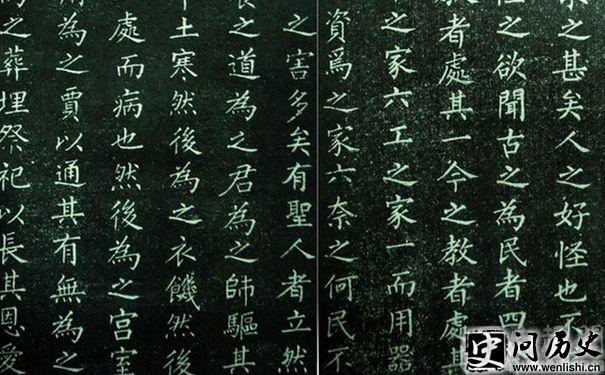 之甚矣人之好怪也不
之欲聞古之為民者四
者處其一今之教者處其
之家六工之家一而用器
資焉之家六奈之何民不
之害多矣有聖人者立然
之道為之君為之師驅其
土寒然後為之衣饑然後
處而病也然後為之宫室
為之賈以通其有無為之
之葬埋祭祀以長其恩愛
问历史
www.wenlishi.cn